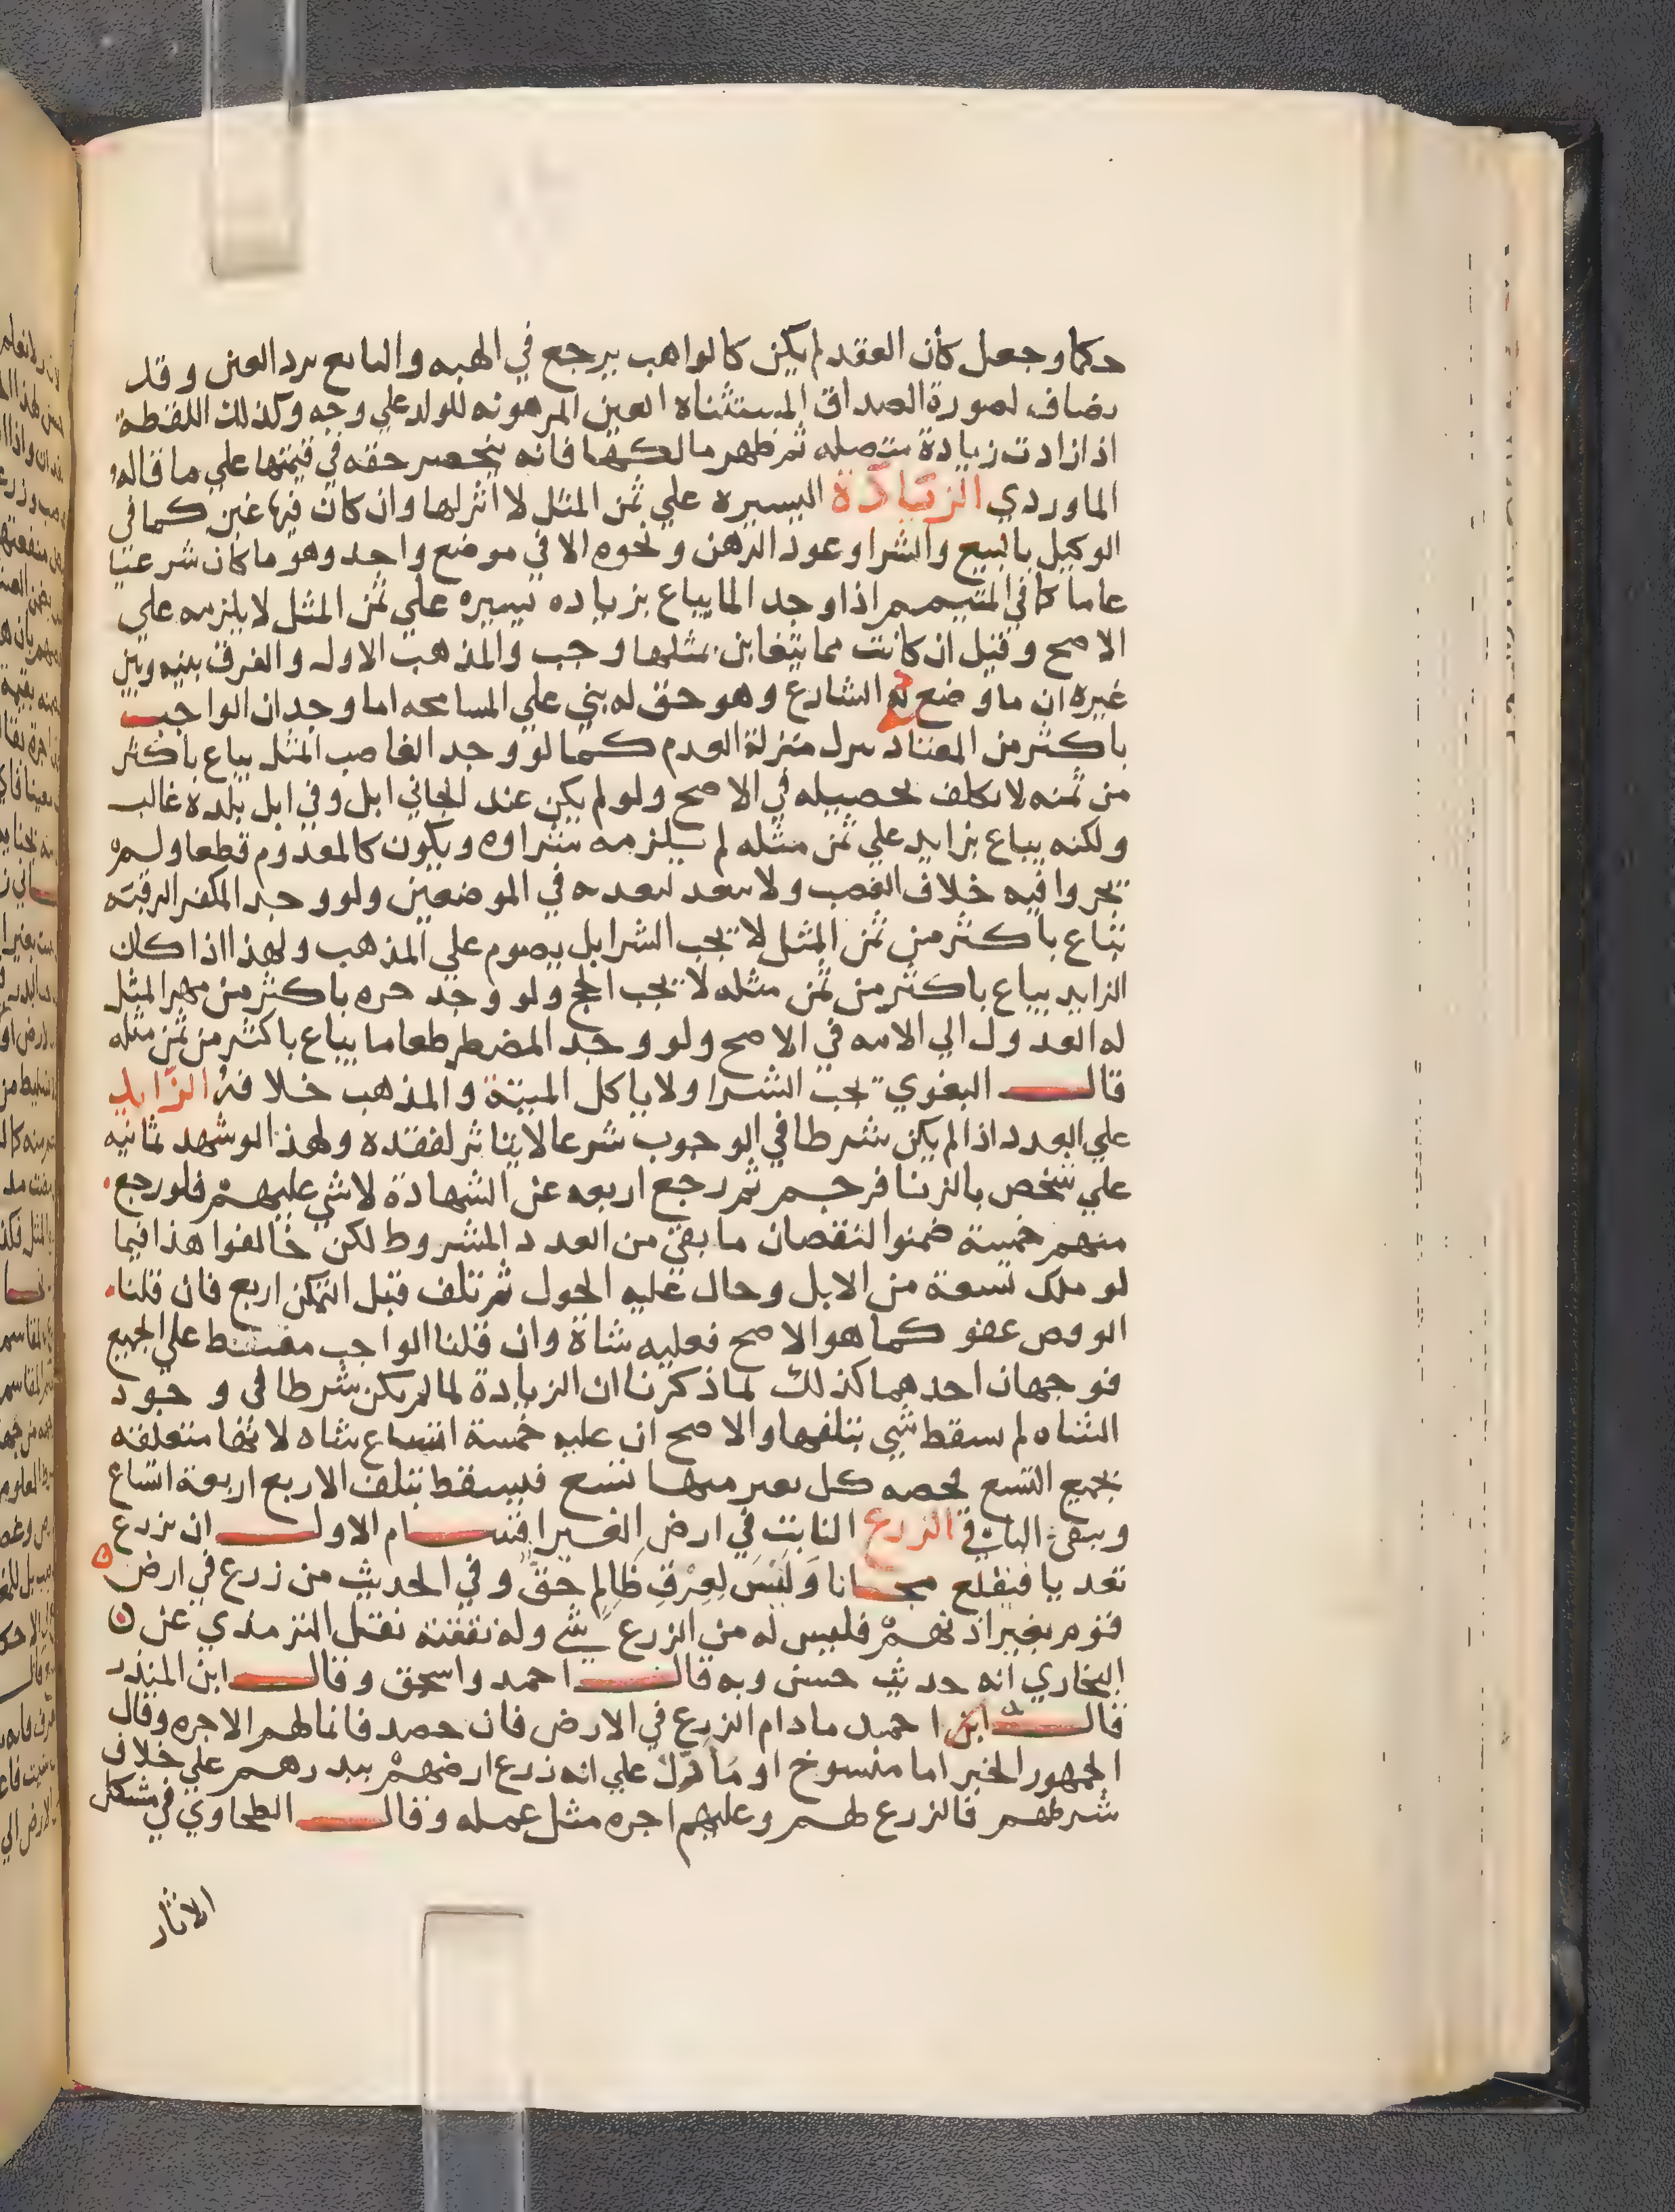 حكما وجعل كأن العقد لم يكن كالواهب يرجع في الهبه والبايع يرد العين وقد
يضاف لصورة الصداق المستثناه العين المرهونه للولد علي وجه وكذلك اللقطة
اذا زادت زيادة متصله ثم ظهر مالكها فانه ينحصر حقه في قيمتها علي ما قاله
الماوردي الزيادة اليسيره علي ثمن المثل لا اثر لها وان كان فيها غبن كما في
الوكيل بالبيع والشرا وعود الرهن ونحوه الا في موضع واحد وهو ما كان شرعيا
عاما كما في المتيمم اذا وجد الما يباع بزياده يسيره علي ثمن المثل لا يلزمه علي
الاصح وقيل ان كانت مما يتغابن بمثلها وجب والمذهب الاول والفرق بينه وبين
غيره ان ما وضع له الشارع وهو حق له بني علي المسامحه اما وجدان الواجب
باكثر من المعتاد ينزل منزلة العدم كما لو وجد الغاصب المثل يباع باكثر
من ثمنه لا يكلف تحصيله في الاصح ولو لم يكن عند الجاني ابل وفي ابل بلده غالب
ولكنه يباع بزايد علي ثمن مثله لم يلزمه شراوه ويكون كالمعدوم قطعا ولم
يجروا فيه خلاف الغصب ولا يبعد تعديه في الموضعين ولو وجد المكفر الرقبه
تباع باكثر من ثمن المثل لا يجب الشرا بل يصوم علي المذهب ولهذا اذا كان
الزايد يباع باكثر من ثمن مثله لا يجب الحج ولو وجد حره باكثر من مهر المثل
له العدول الي الامه في الاصح ولو وجد المضطر طعاما يباع باكثر من ثمن مثله
قال البغوي يجب الشرا ولا ياكل الميتة والمذهب خلافه الزايد
علي العدد اذا لم يكن شرطا في الوجوب شرعا لا يتاثر لفقده ولهذا لو شهد ثمانيه
علي شخص بالزنا فرجم ثم رجع اربعه عن الشهادة لا شي عليهم فلو رجع
منهم خمسة ضمنوا لنقصان ما بقي من العدد المشروط لكن خالفوا هذا فيما
لو ملك تسعة من الابل وحال عليه الحول ثم تلف قبل التمكن اربع فان قلنا
الوقص عفو كما هو الاصح فعليه شاة وان قلنا الواجب مقسط علي الجميع
فوجهان احدهما كذلك لما ذكرنا ان الزيادة لما لم يكن شرطا في وجود
الشاه لم سقط شي بتلفها والاصح ان عليه خمسة اتساع شاه لانها متعلقه
بجميع التسع فحصه كل بعير منها تسع فيسقط بتلف الاربع اربعة اتساع
ويبقي الباقي الزرع النابت في ارض الغير اقسام الاول ان يزرع
تعديا فيقلع مجانا وَلَيْسَ لِعِرْقٍ ظَالِمٍ حَقٌّ وفي الحديث من زرع في ارض
قوم بغير اذنهم فليس له من الزرع شي وله نفقته نقل الترمذي عن
البخاري انه حديث حسن وبه قال احمد واسحق وقال ابن المنذر
قال ابن احمد ما دام الزرع في الارض فان حصد فانما لهم الاجره وقال
الجمهور الخبر اما منسوخ او مأول علي انه زرع ارضهم ببدرهم علي خلاف
شرطهم فالزرع لهم وعليهم اجره مثل عمله وقال الطحاوي في مشكل
الاثار